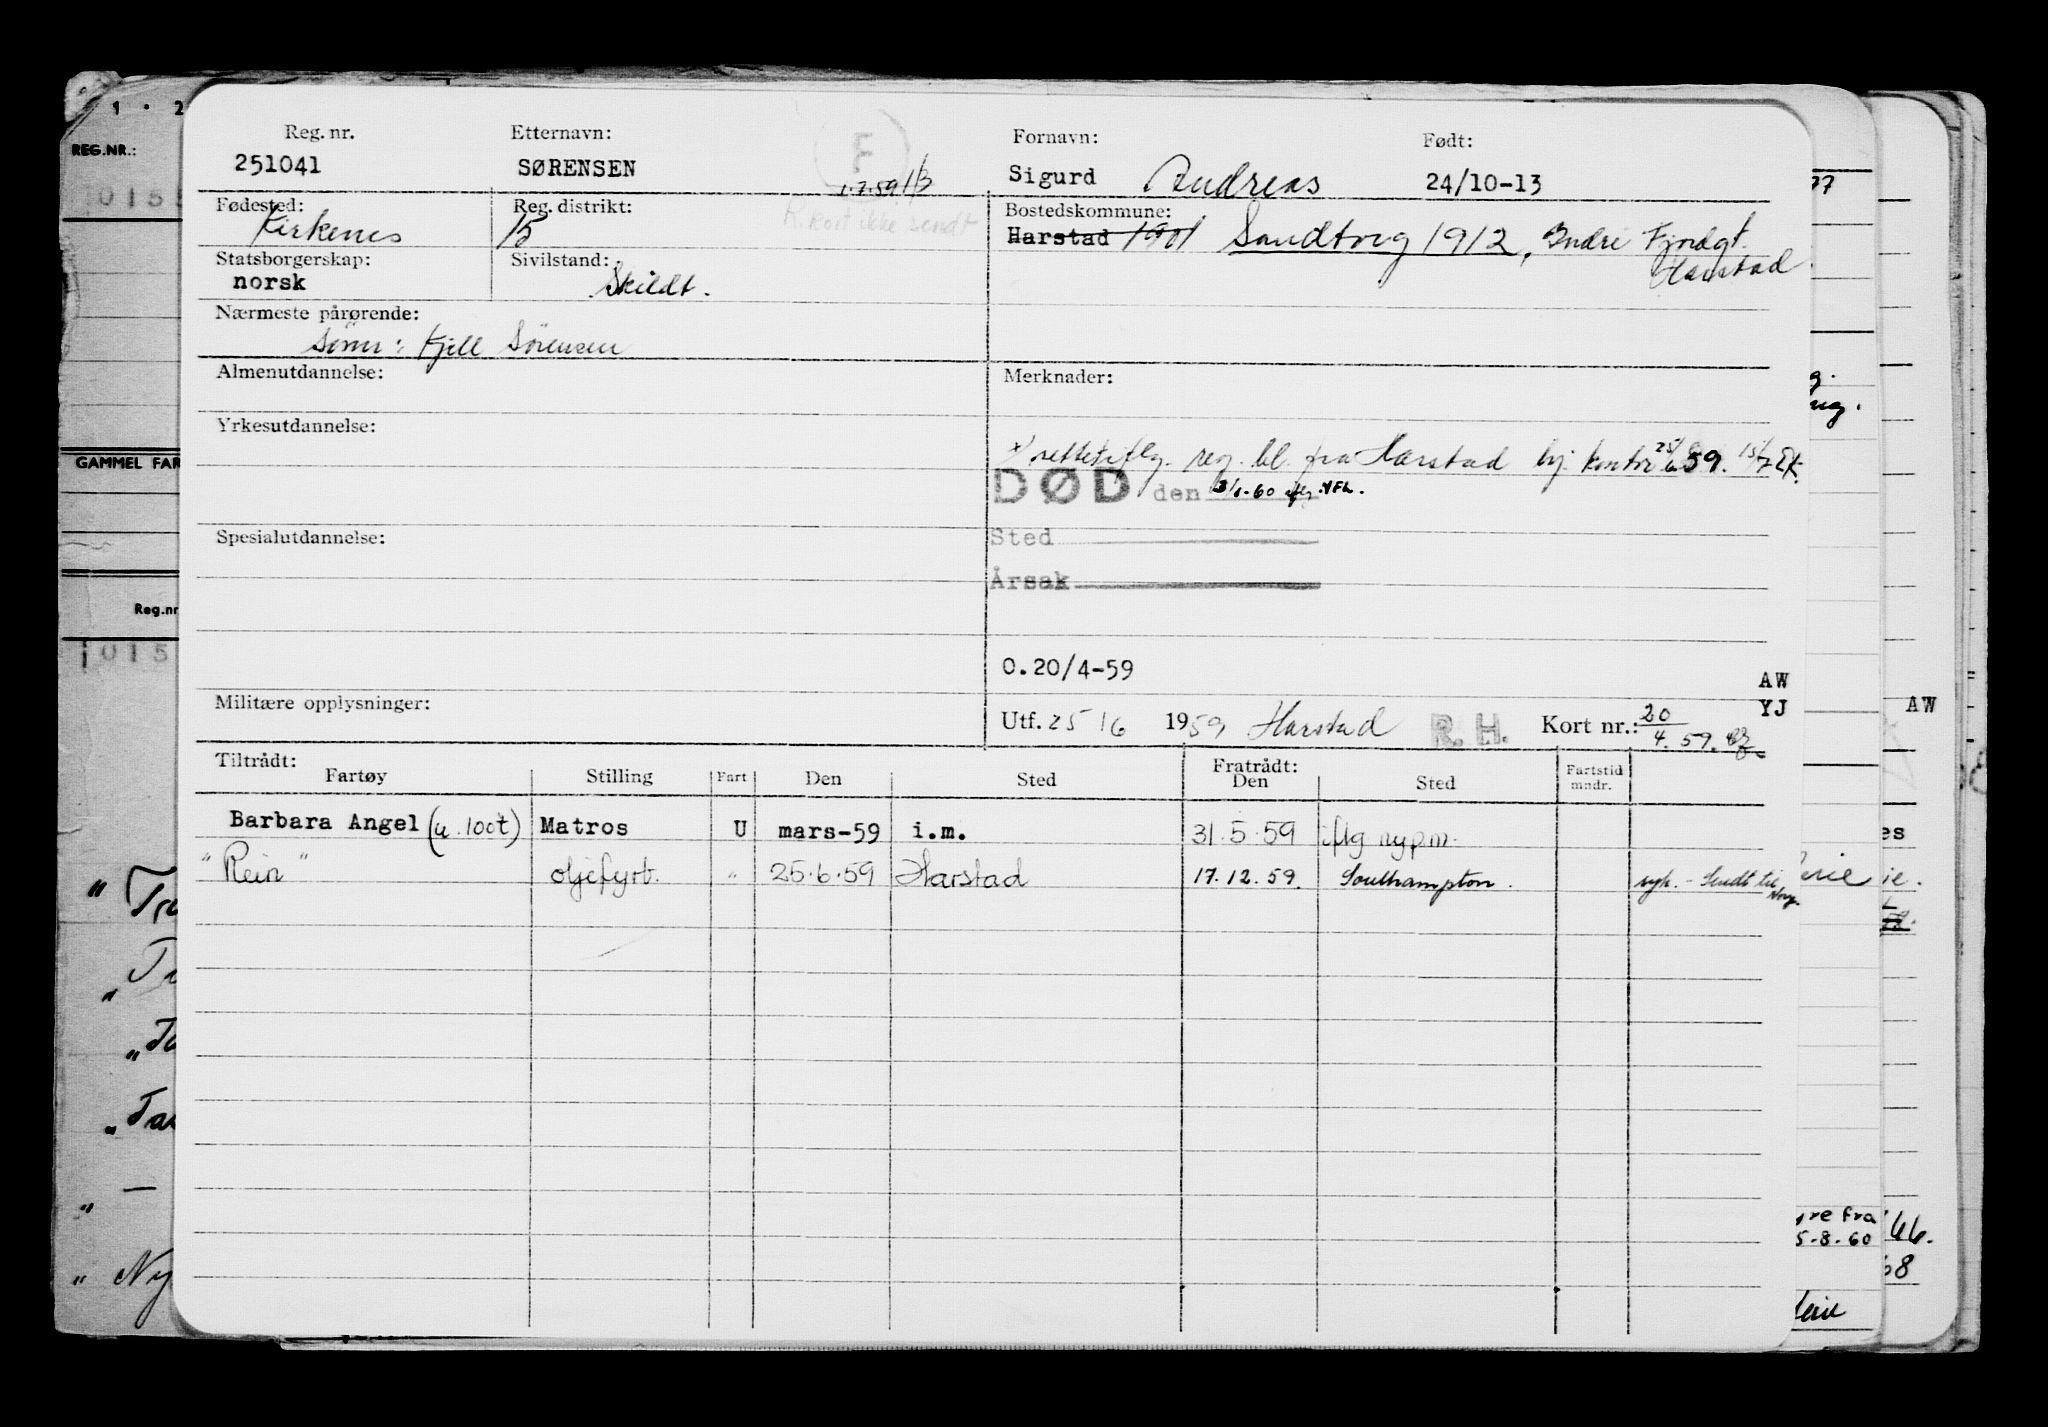 Reg. nr. Etternavn: F Fornavn: Født:
251041 SØRENSEN 1.7.59 Sigurd Andreas 24/10-13
R. kort ikke sendt
Fødested: Reg. distrikt: Bostedskommune:
Kirkenes 15 Harstad 1901 Sandtorg 1912, Indre Fjordgt.
Harstad
Statsborgerskap: Sivilstand:
norsk Skildt.
Nærmeste pårørende:
Sønn: Kjell Sörensen
Almenutdannelse: Merknader:
Yrkesutdannelse:
rettet iflg. reg. bl. fra Harstad kontor 59.
DØD den 3/1-60 iflg.
Spesialutdannelse: Sted
Årsak
O.20/4-59
AW
YJ
Militære opplysninger: Utf. 25/6 1959 Harstad R.H. Kort nr.: 20
4.59.
Tiltrådt: Fratrådt:
Fartøy Stilling Fart Den Sted Den Sted Fartstid mndr.
Barbara Angel (u. 100t) Matros U mars-59 i.m. 31.5.59 iflg rypm.
"Rein" oljefyrb. " 25.6.59 Harstad 17.12.59. Southampton. syk. - Sendt til Norg.
1 · 2
REG.NR.:
0155
GAMMEL FAR
Reg.nr
015
AW
yre fra
5-8-60
66.
68